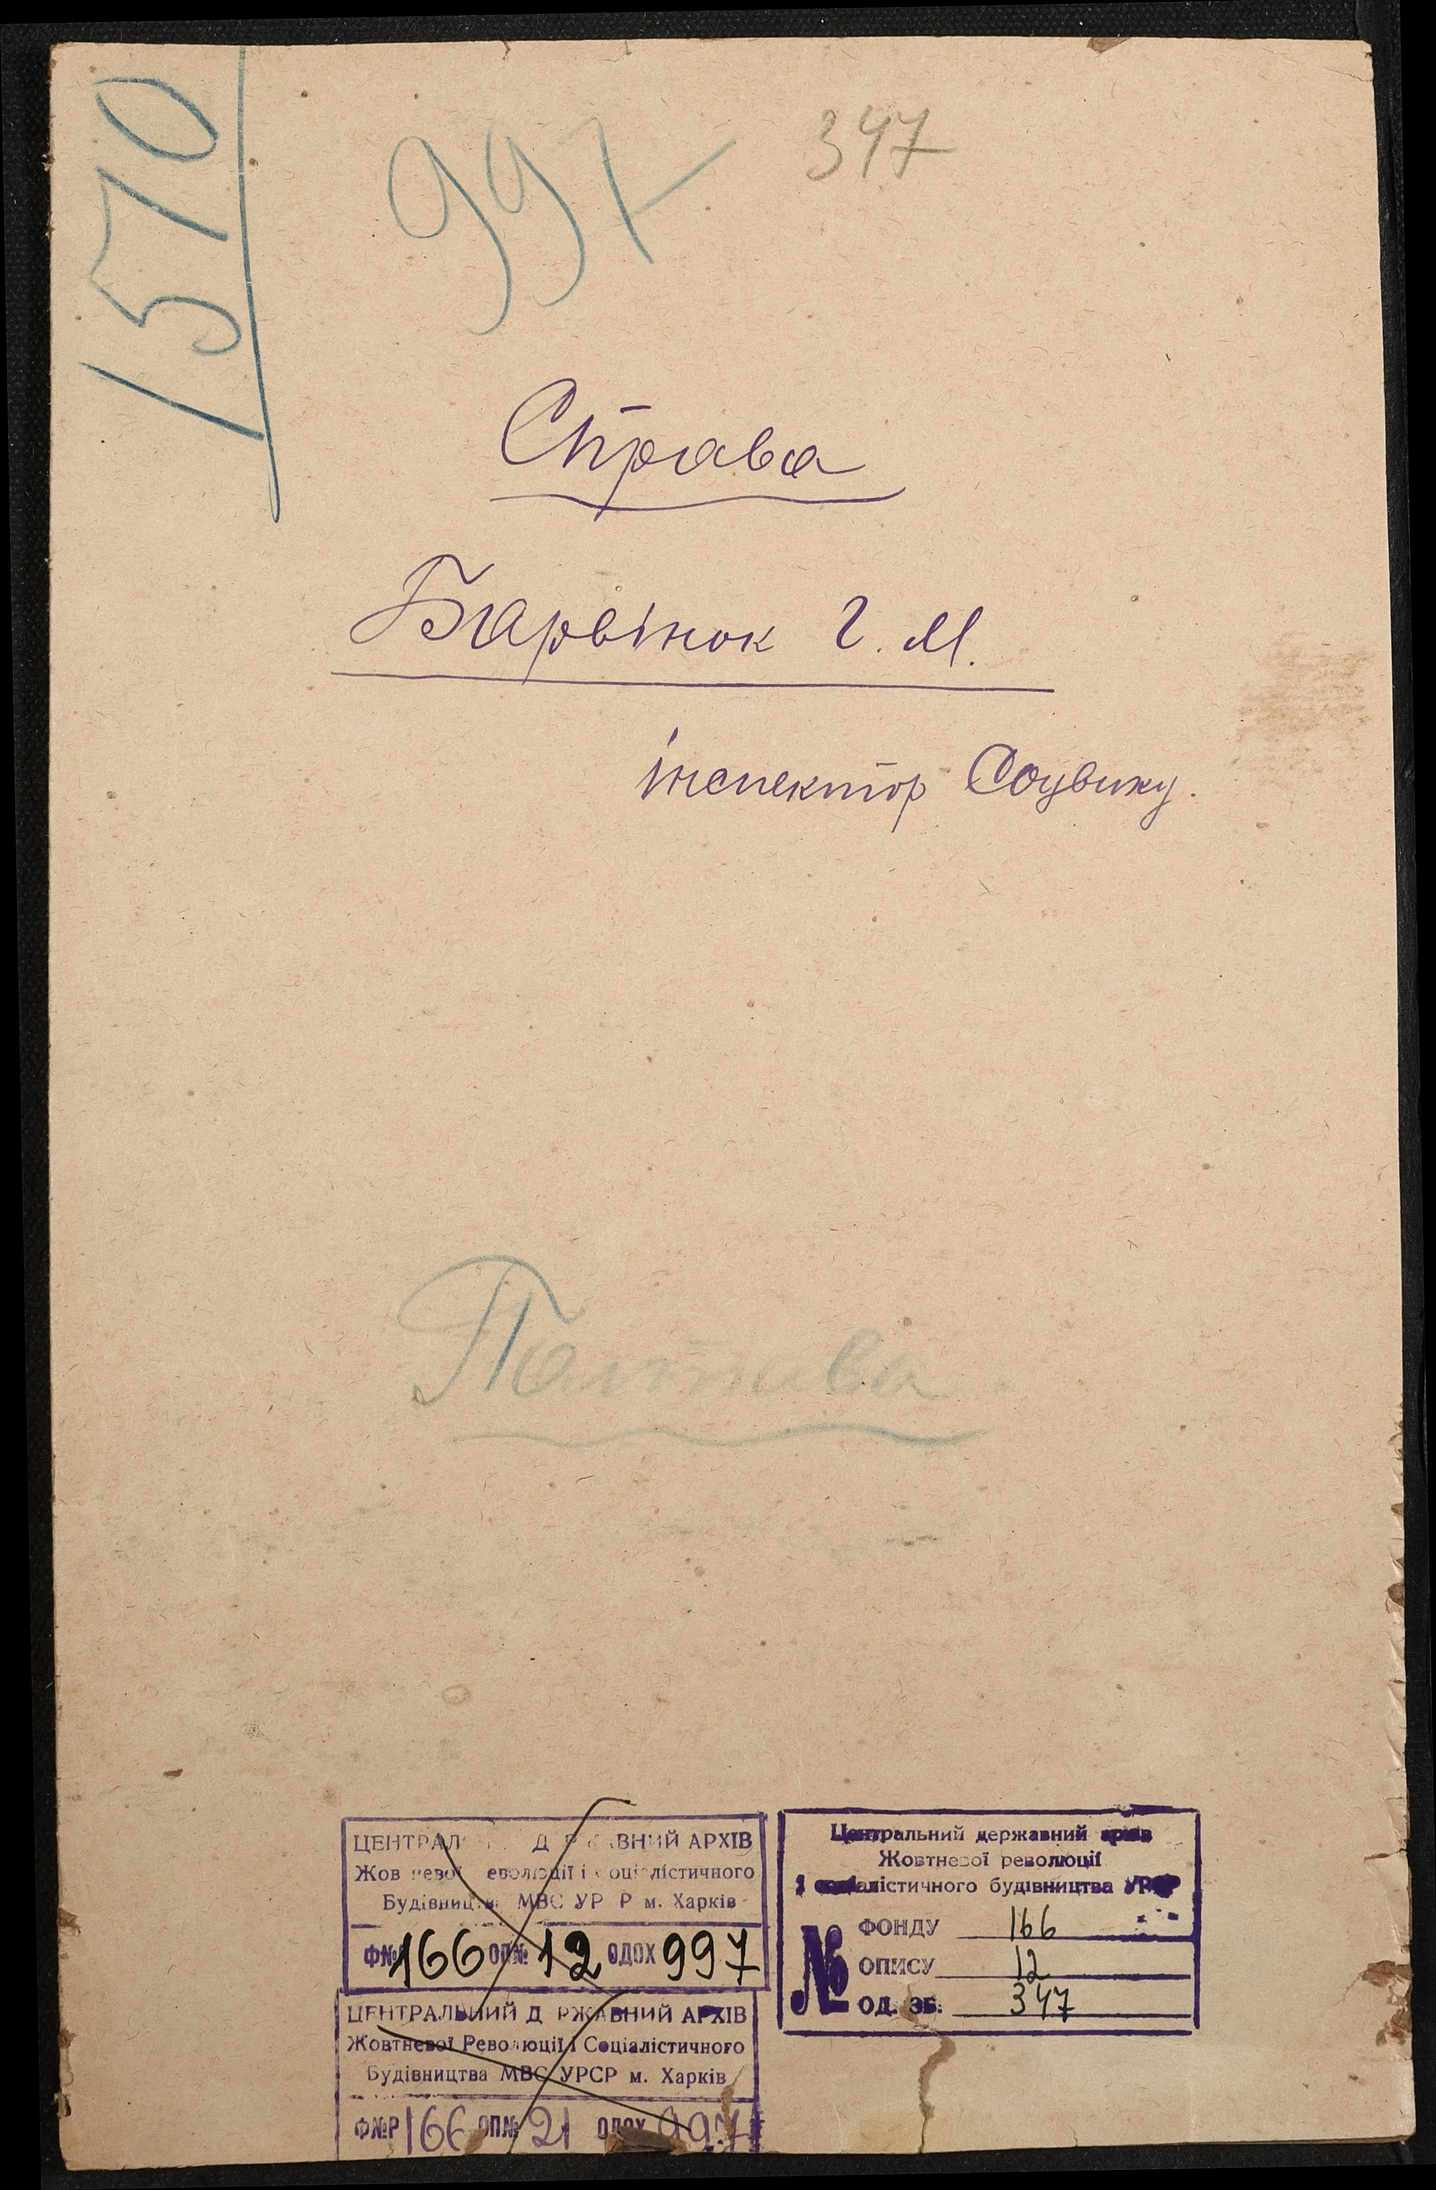 1570
997
347
Справа
Барвінок Г. М.
інспектор Соцвиху.
Полтава
ЦЕНТРАЛ Д РЖАВНИЙ АРХІВ
Жов невої еволюції і соціалістичного
Будівництва МВС УР Р м. Харків
Ф№ 166 ОП№ 12 ОДОХ 997
ЦЕНТРАЛЬНИЙ Д РЖАВНИЙ АРХІВ
Жовтневої Революції і Соціалістичного
Будівництва МВС УРСР м. Харків
Ф№Р 166 ОП№ 21 ОДОХ 997
Центральний державний архів
Жовтневої революції
і соціалістичного будівництва УРСР
№ ФОНДУ 166
ОПИСУ 12
ОД. ЗБ. 347